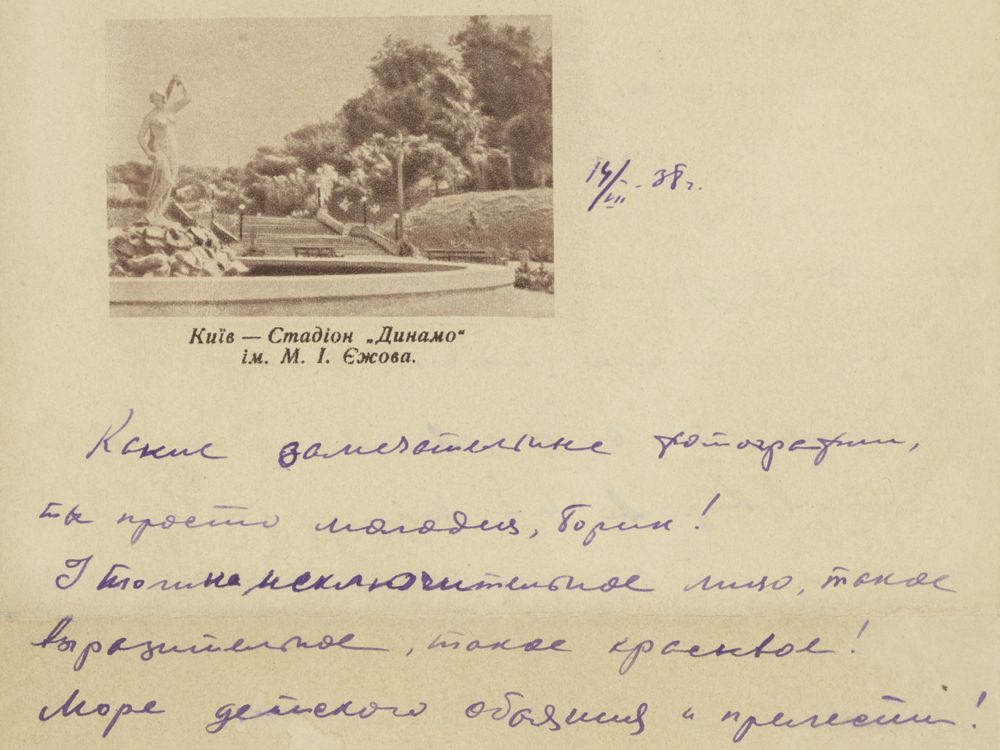 14/III - 38 г.
Київ — Стадіон „Динамо“
ім. М. І. Єжова.
Какие замечательные фотографии,
ты просто молодец, Борик!
исключительное лицо, такое
выразительное, такое красивое!
Море детского обаяния и прелести!